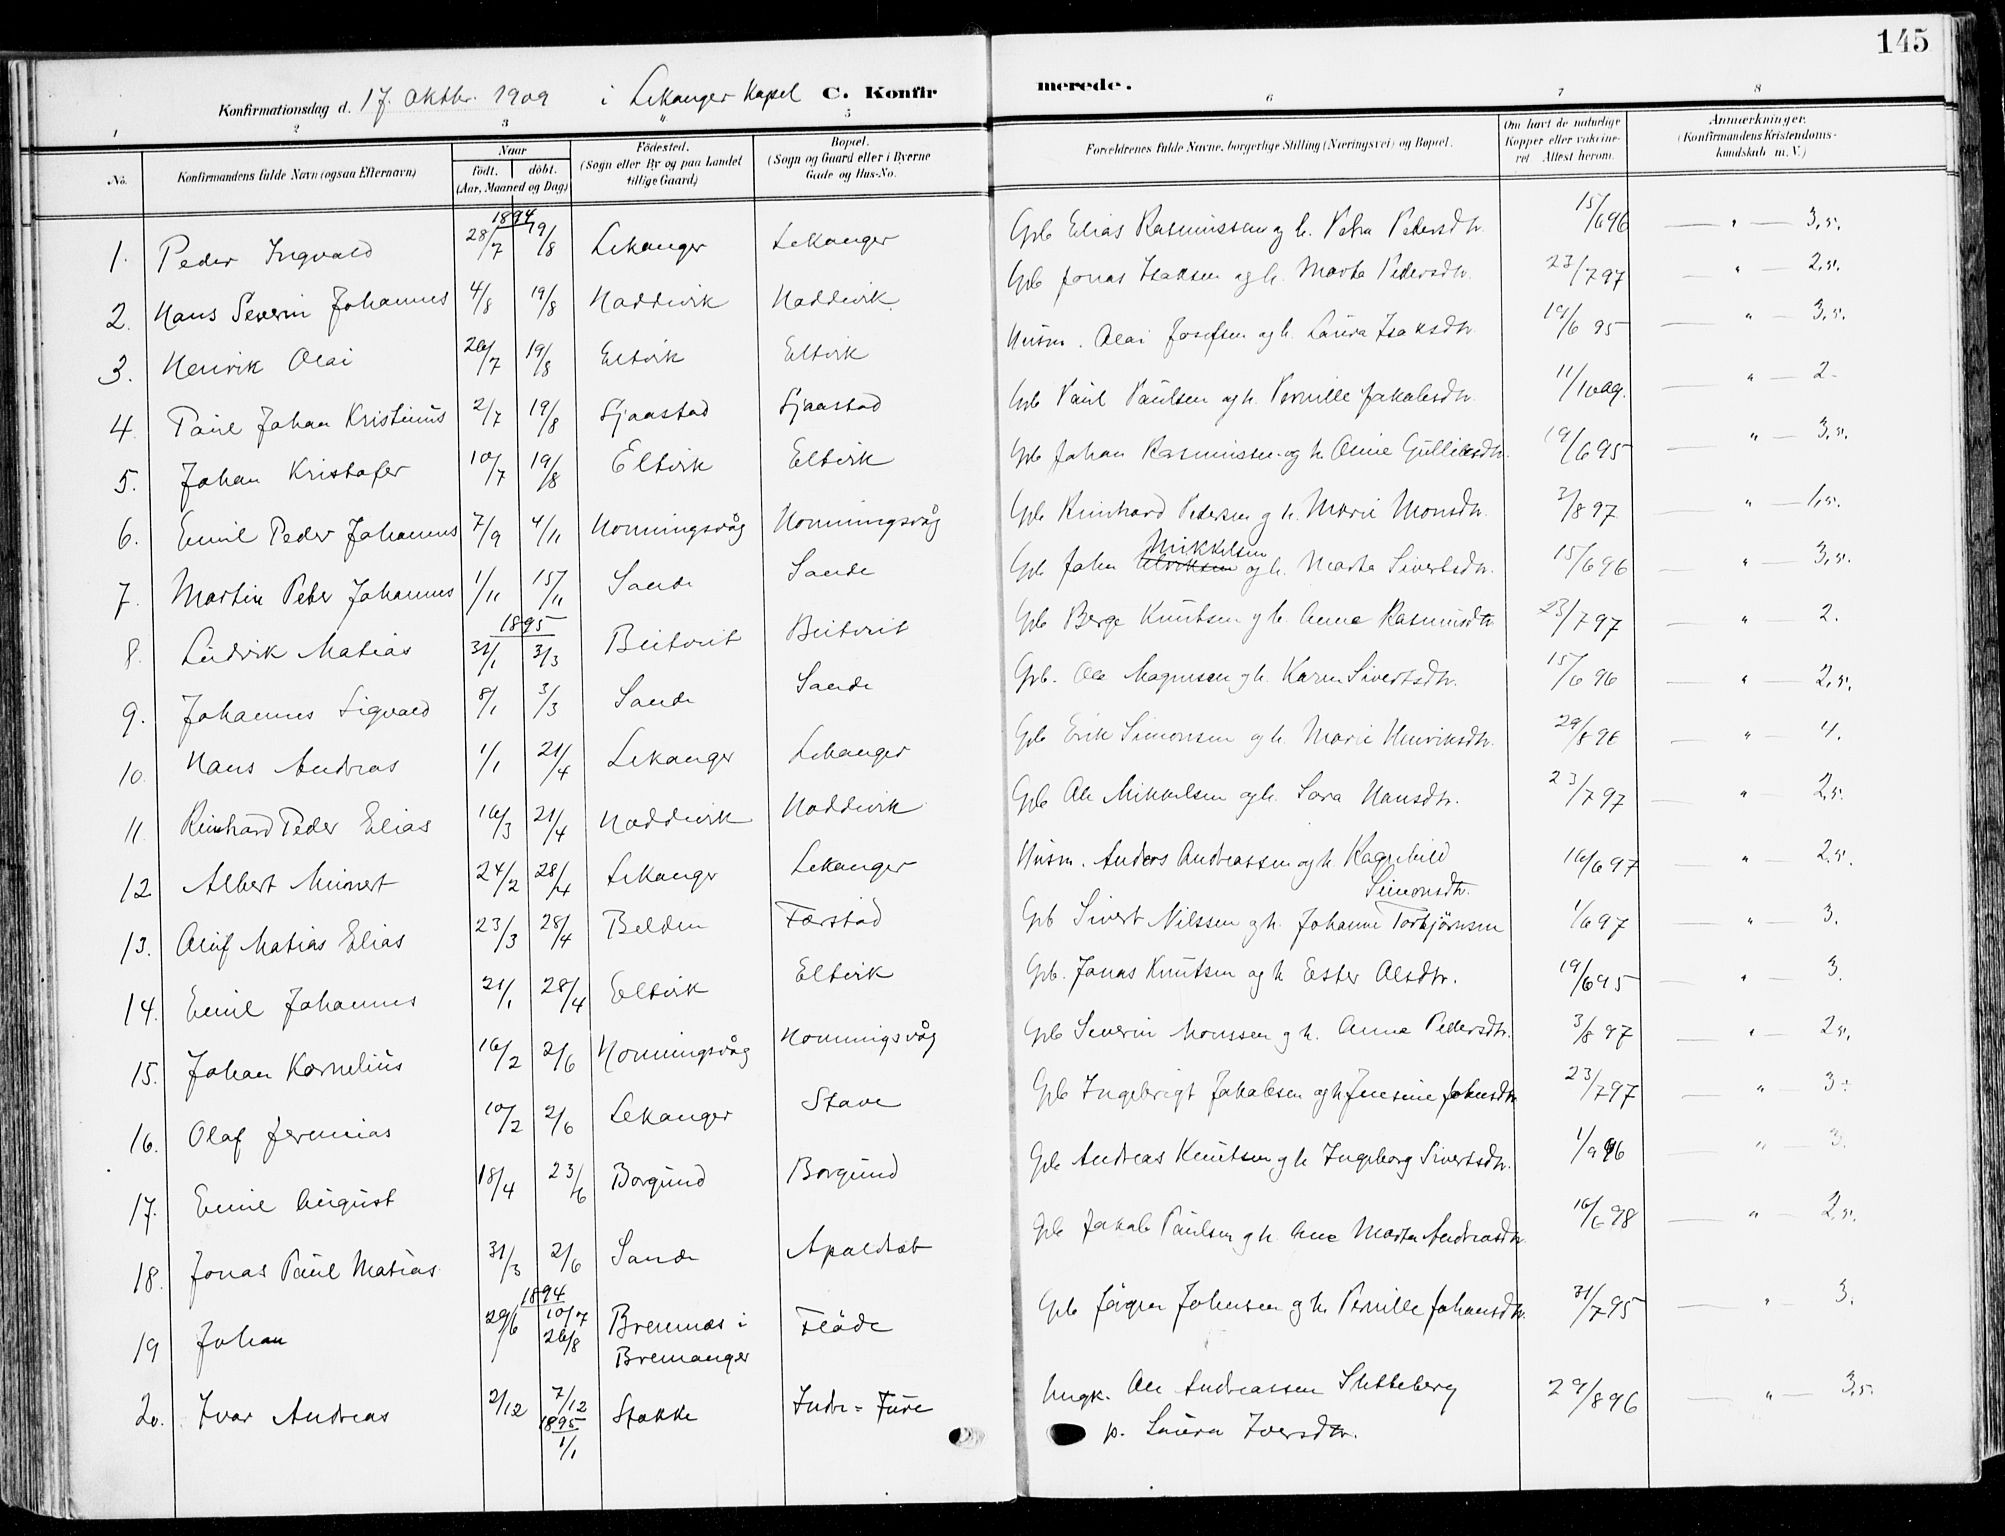 145
Konfirmationsdag d. 17. Oktbr. 1909 i Lekanger Kapel C. Konfirmerede.
1 2 3 4. 5 6 7 8
No. Konfirmandens fulde Navn (ogsaa Efternavn) Naar født. døbt. (Aar, Maaned og Dag) Fødested. (Sogn eller By og paa Landet tillige Gaard) Bopæl. (Sogn og Gaard eller i Byerne Gade og Hus-No. Forældrenes fulde Navne, borgerlige Stilling (Næringsvei) og Bopæl. Om havt de naturlige Kopper eller vakcineret. Attest herom. Anmærkninger. (Konfirmandens Kristendomskundskab m. V.)
1894
1. Peder Ingvald 28/7 19/8 Lekanger Lekanger Gb Elias Rasmussen og h. Petra Pedersdtr. 15/6 96 — " — 3,5.
2. Hans Severin Johannes 4/8 19/8 Noddevik Noddevik Gb Jonas Isaksen og h. Marta Pedersdtr. 23/7 97 — " — 2,5.
3. Henrik Olai 26/7 19/8 Eltvik Eltvik Husm. Olai Josefsen og h. Laura Isaksdtr. 19/6 95 — " — 3,5.
4. Paul Johan Kristinus 2/7 19/8 Sjaastad Sjaastad Gb Paul Paulsen og h. Pernille Jakobsdtr. 11/10 09. — " — 2.
5. Johan Kristofer 10/7 19/8 Eltvik Eltvik Gb Johan Rasmussen og h. Oline Gulliksdtr. 19/6 95 — " — 3,5.
6. Emil Peder Johannes 7/9 4/11 Honningsvåg Honningsvåg Gb Reinhard Pedersen og h. Marie Monsdtr. 2/8 97 — " — 1,5.
7. Martin Peter Johannes 1/11 15/11 Sande Sande Gb Johan Mikkelsen og h. Marta Sivertsdtr. 15/6 96 — " — 3,5.
1895
8. Ludvik Matias 31/1 3/3 Beitveit Beitveit Gb Berge Knutsen og h. Anne Rasmusdtr. 23/7 97 " 2.
9. Johannes Sigvald 8/1 3/3 Sande Sande Gb. Ole Magnusen og h. Karen Sivertsdtr. 15/6 96 — " — 2,5.
10. Hans Andreas 1/1 21/4 Lekanger Lekanger Gb Erik Simonsen og h. Marie Henriksdtr. 29/8 96 — " — 4.
11. Reinhard Peder Elias 16/3 21/4 Noddevik Noddevik Gb Ole Mikkelsen og h. Sara Hansdtr. 23/7 97 — " — 2,5.
12 Albert Meinert 24/2 28/4 Lekanger Lekanger Husm. Anders Andreassen og h. Ragnhild Simonsdtr. 16/6 97 — " — 2,5.
13. Oluf Matias Elias 23/3 28/4 Belden Færstad Gb Sivert Nilssen og h. Johanne Torbjørnsen 1/6 97 — " — 3.
14. Emil Johannes 21/1 28/4 Eltvik Eltvik Gb. Jonas Knutsen og h Ester Olsdtr. 19/6 95 — " — 3.
15. Johan Kornelius 16/2 2/6 Honningsvåg Honningsvåg Gb Severin Monssen og h. Anne Pedersdtr. 3/8 97 — " — 2,5.
16. Olaf Jeremias 10/2 2/6 Lekanger Stave Gb Ingebrigt Jakobsen og h Jensine Johnsdtr. 23/7 97 — " — 3÷
17. Emil August 18/4 23/6 Borgund Borgund Gb Andreas Knutsen og h Ingeborg Sivertsdtr. 1/9 96 " — 3.
18. Jonas Paul Matias 31/3 2/6 Sande Apaldset Gb Jakob Paulsen og h. Ane Marta Andreasdtr. 16/6 98 — " — 2,5.
1894
19 Johan 29/6 10/7 26/8 Bremnes i Bremanger Fløde Gb Jørgen Johnsen og h. Pernille Johansdtr. 31/7 95 — " — 3.
20. Ivar Andreas 2/12 7/12 1895 1/1 Stokke Indre = Fure Ungk. Ole Andreassen Sletteberg p. Laura Iversdtr. 29/8 96 — " — 3,5.